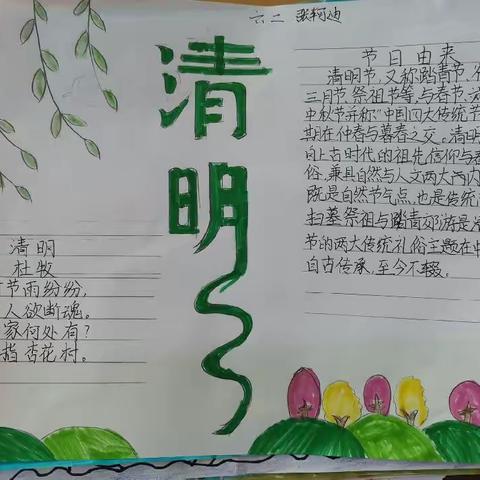 六二 张轲迪
清明
节日由来
清明节,又称踏青节、
三月节、祭祖节等,与春节、
中秋节并称“中国四大传统节
期在仲春与暮春之交。清明
自上古时代的祖先信仰与春
俗,兼具自然与人文两大内
既是自然节气点,也是传统
扫墓祭祖与踏青郊游是清
节的两大传统礼俗主题在中
自古传承,至今不辍。
清明
杜牧
节雨纷纷,
人欲断魂。
家何处有?
指杏花村。